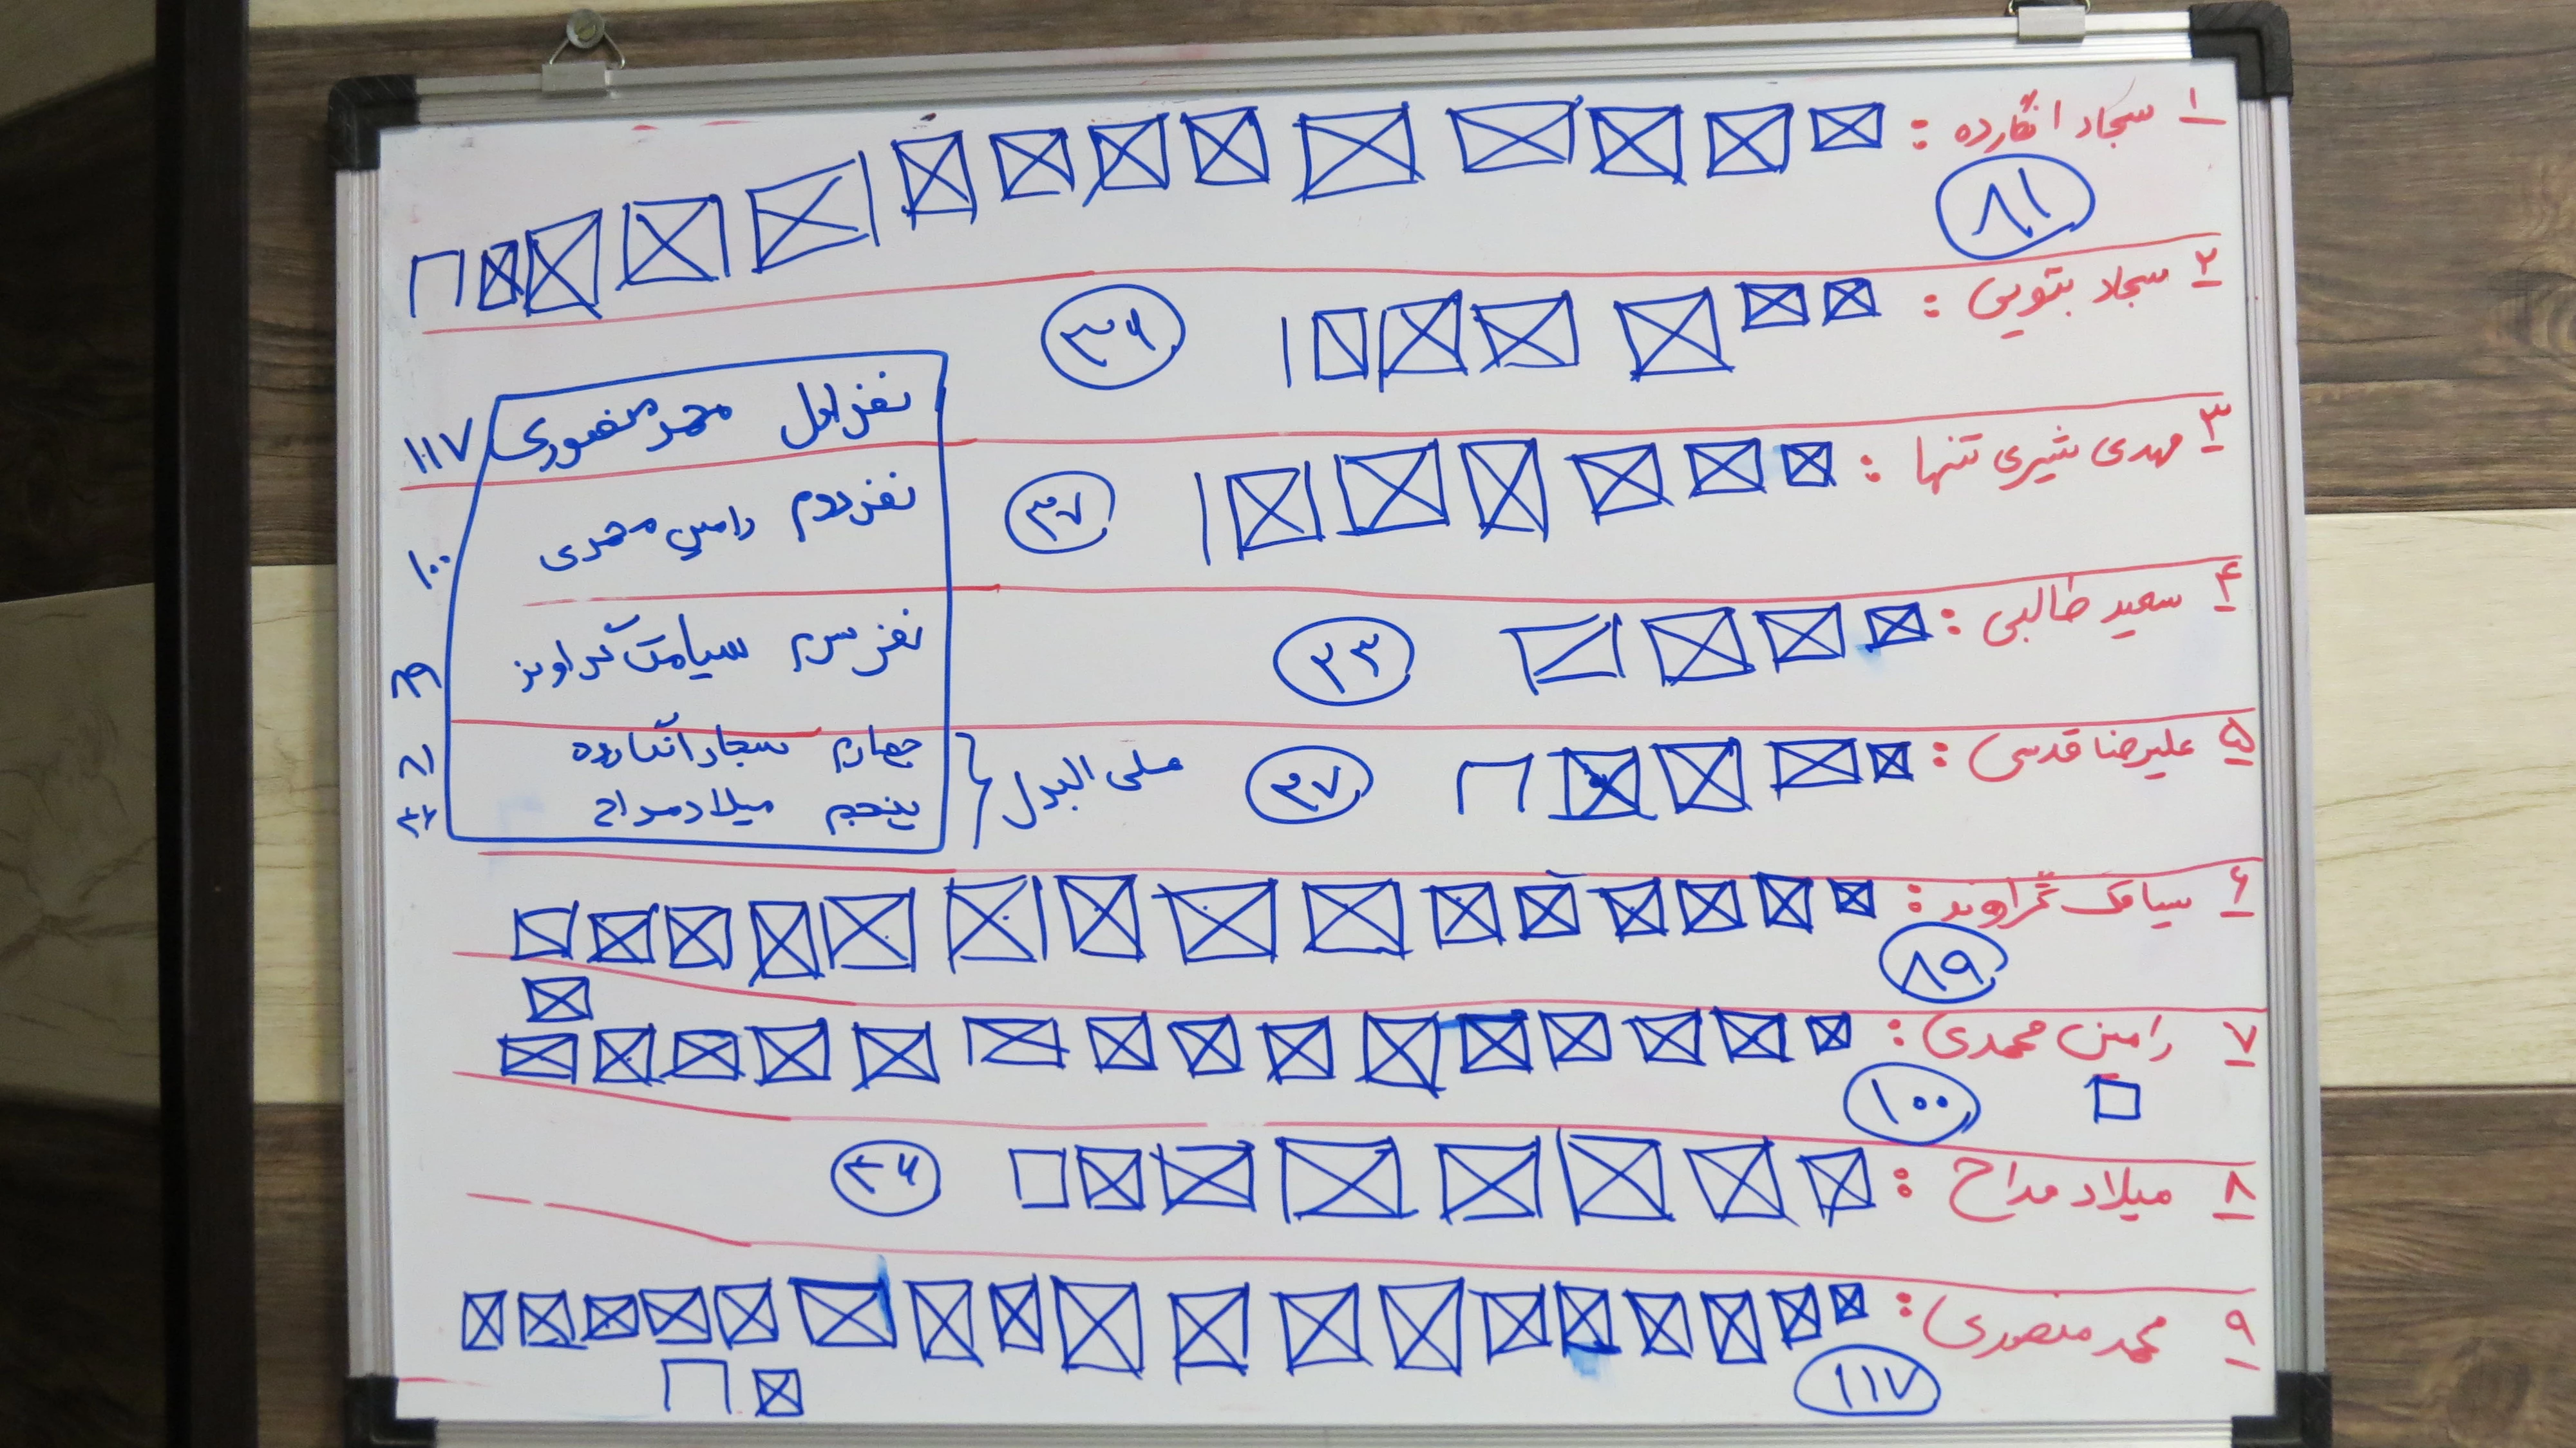 ۱ سجاد انگارده :
۸۱
۲ سجاد بتویی :
۳۶
۳ مهدی شیری تنها :
۳۷
۴ سعید طالبی :
۲۳
۵ علیرضا قدسی :
۲۷
۶ سیامک گراوند :
۸۹
۷ رامین محمدی :
۱۰۰
۸ میلاد مداح :
۹ محمد منصوری :
۱۱۷
نفر اول محمد منصوری ۱۱۷
نفر دوم رامین محمدی ۱۰۰
نفر سوم سیامک گراوند ۸۹
چهارم سجاد انگارده ۸۱
پنجم میلاد مداح
علی البدل